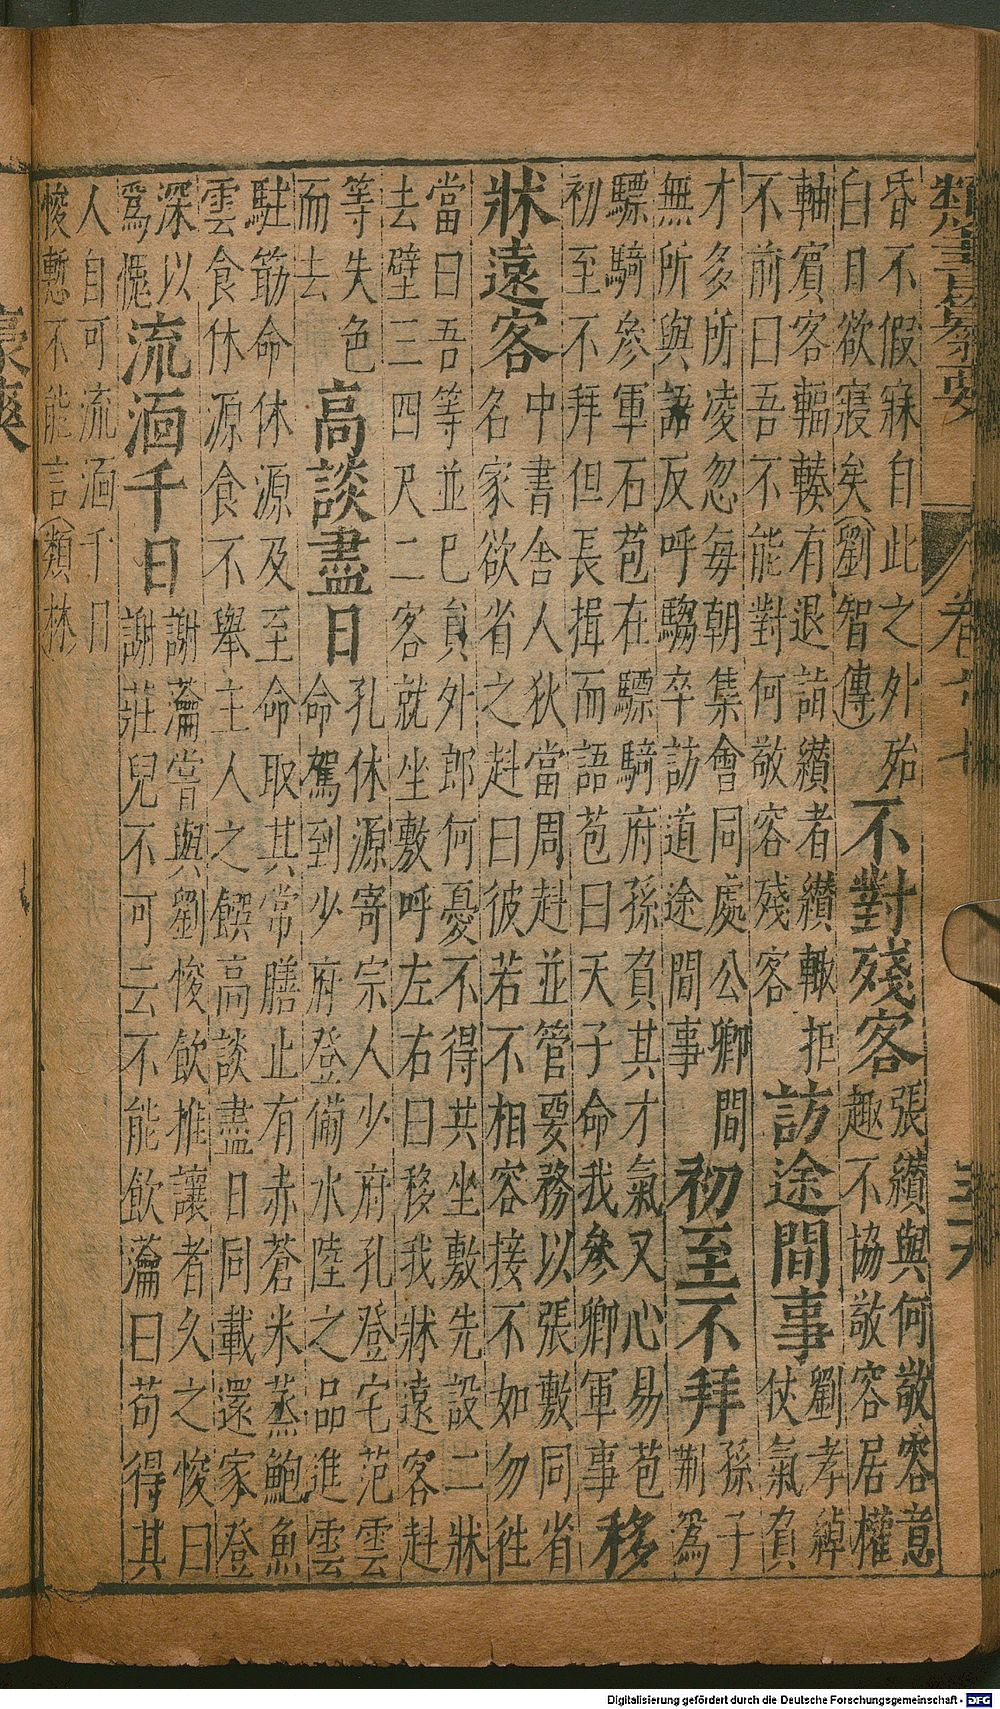 類書纂要
昏不假寐自此之外殆
白日欲寢矣(劉智傳)
不對殘客
張纘與何敬容意
趣不協敬容居權
軸賔客輻輳有退詣纘者纘輙拒
不前曰吾不能對何敬容殘客
訪途間事
劉孝綽
仗氣負
才多所凌忽每朝集會同處公卿間
無所與語反呼騶卒訪道途間事
初至不拜
孫子
荆為
驃騎參軍石苞在驃騎府孫負其才氣又心易苞
初至不拜但長揖而語苞曰天子命我參卿軍事
移
牀遠客
中書舍人狄當周赳並管要務以張敷同省
名家欲省之赳曰彼若不相容接不如勿徃
當曰吾等並巳貟外郎何憂不得共坐敷先設二牀
去壁三四尺二客就坐敷呼左右曰移我牀遠客赳
等失色
而去
高談盡日
孔休源寄宗人少府孔登宅范雲
命駕到少府登備水陸之品進雲
駐筯命休源及至命取其常膳止有赤蒼米蒸鮑魚
雲食休源食不舉主人之饌高談盡日同載還家登
深以
為愧
流湎千日
謝瀹嘗與劉悛飲推讓者久之悛曰
謝莊兒不可云不能飲瀹曰苟得其
人自可流湎千日
悛慙不能言(類林)
豪爽
Digitalisierung gefördert durch die Deutsche Forschungsgemeinschaft - DFG